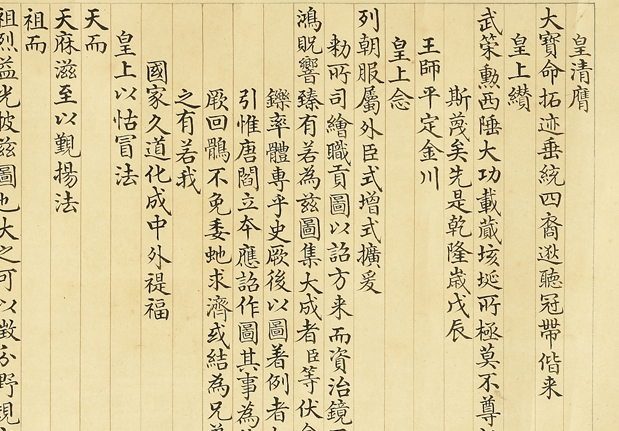 皇清膺
大寶命拓迹垂統四裔逖聽冠帶偕来
皇上纉
武䇿勲西陲大功載蕆垓埏所極莫不尊
斯蔑矣先是乾隆嵗戊辰
王師平定金川
皇上念
列朝服屬外臣式增式擴爰
勅所司繪職貢圖以詔方来而資治鏡
鴻貺響臻有若為兹圖集大成者臣等伏
鑠率體專乎史厥後以圖著例者
引惟唐閻立夲應詔作圖其事為
厥回鶻不免委虵求濟或結為兄
之有若我
國家久道化成中外禔福
皇上以怙冐法
天而
天庥滋至以覲揚法
祖而
祖烈益光被兹圖也大之可以徵分野覘